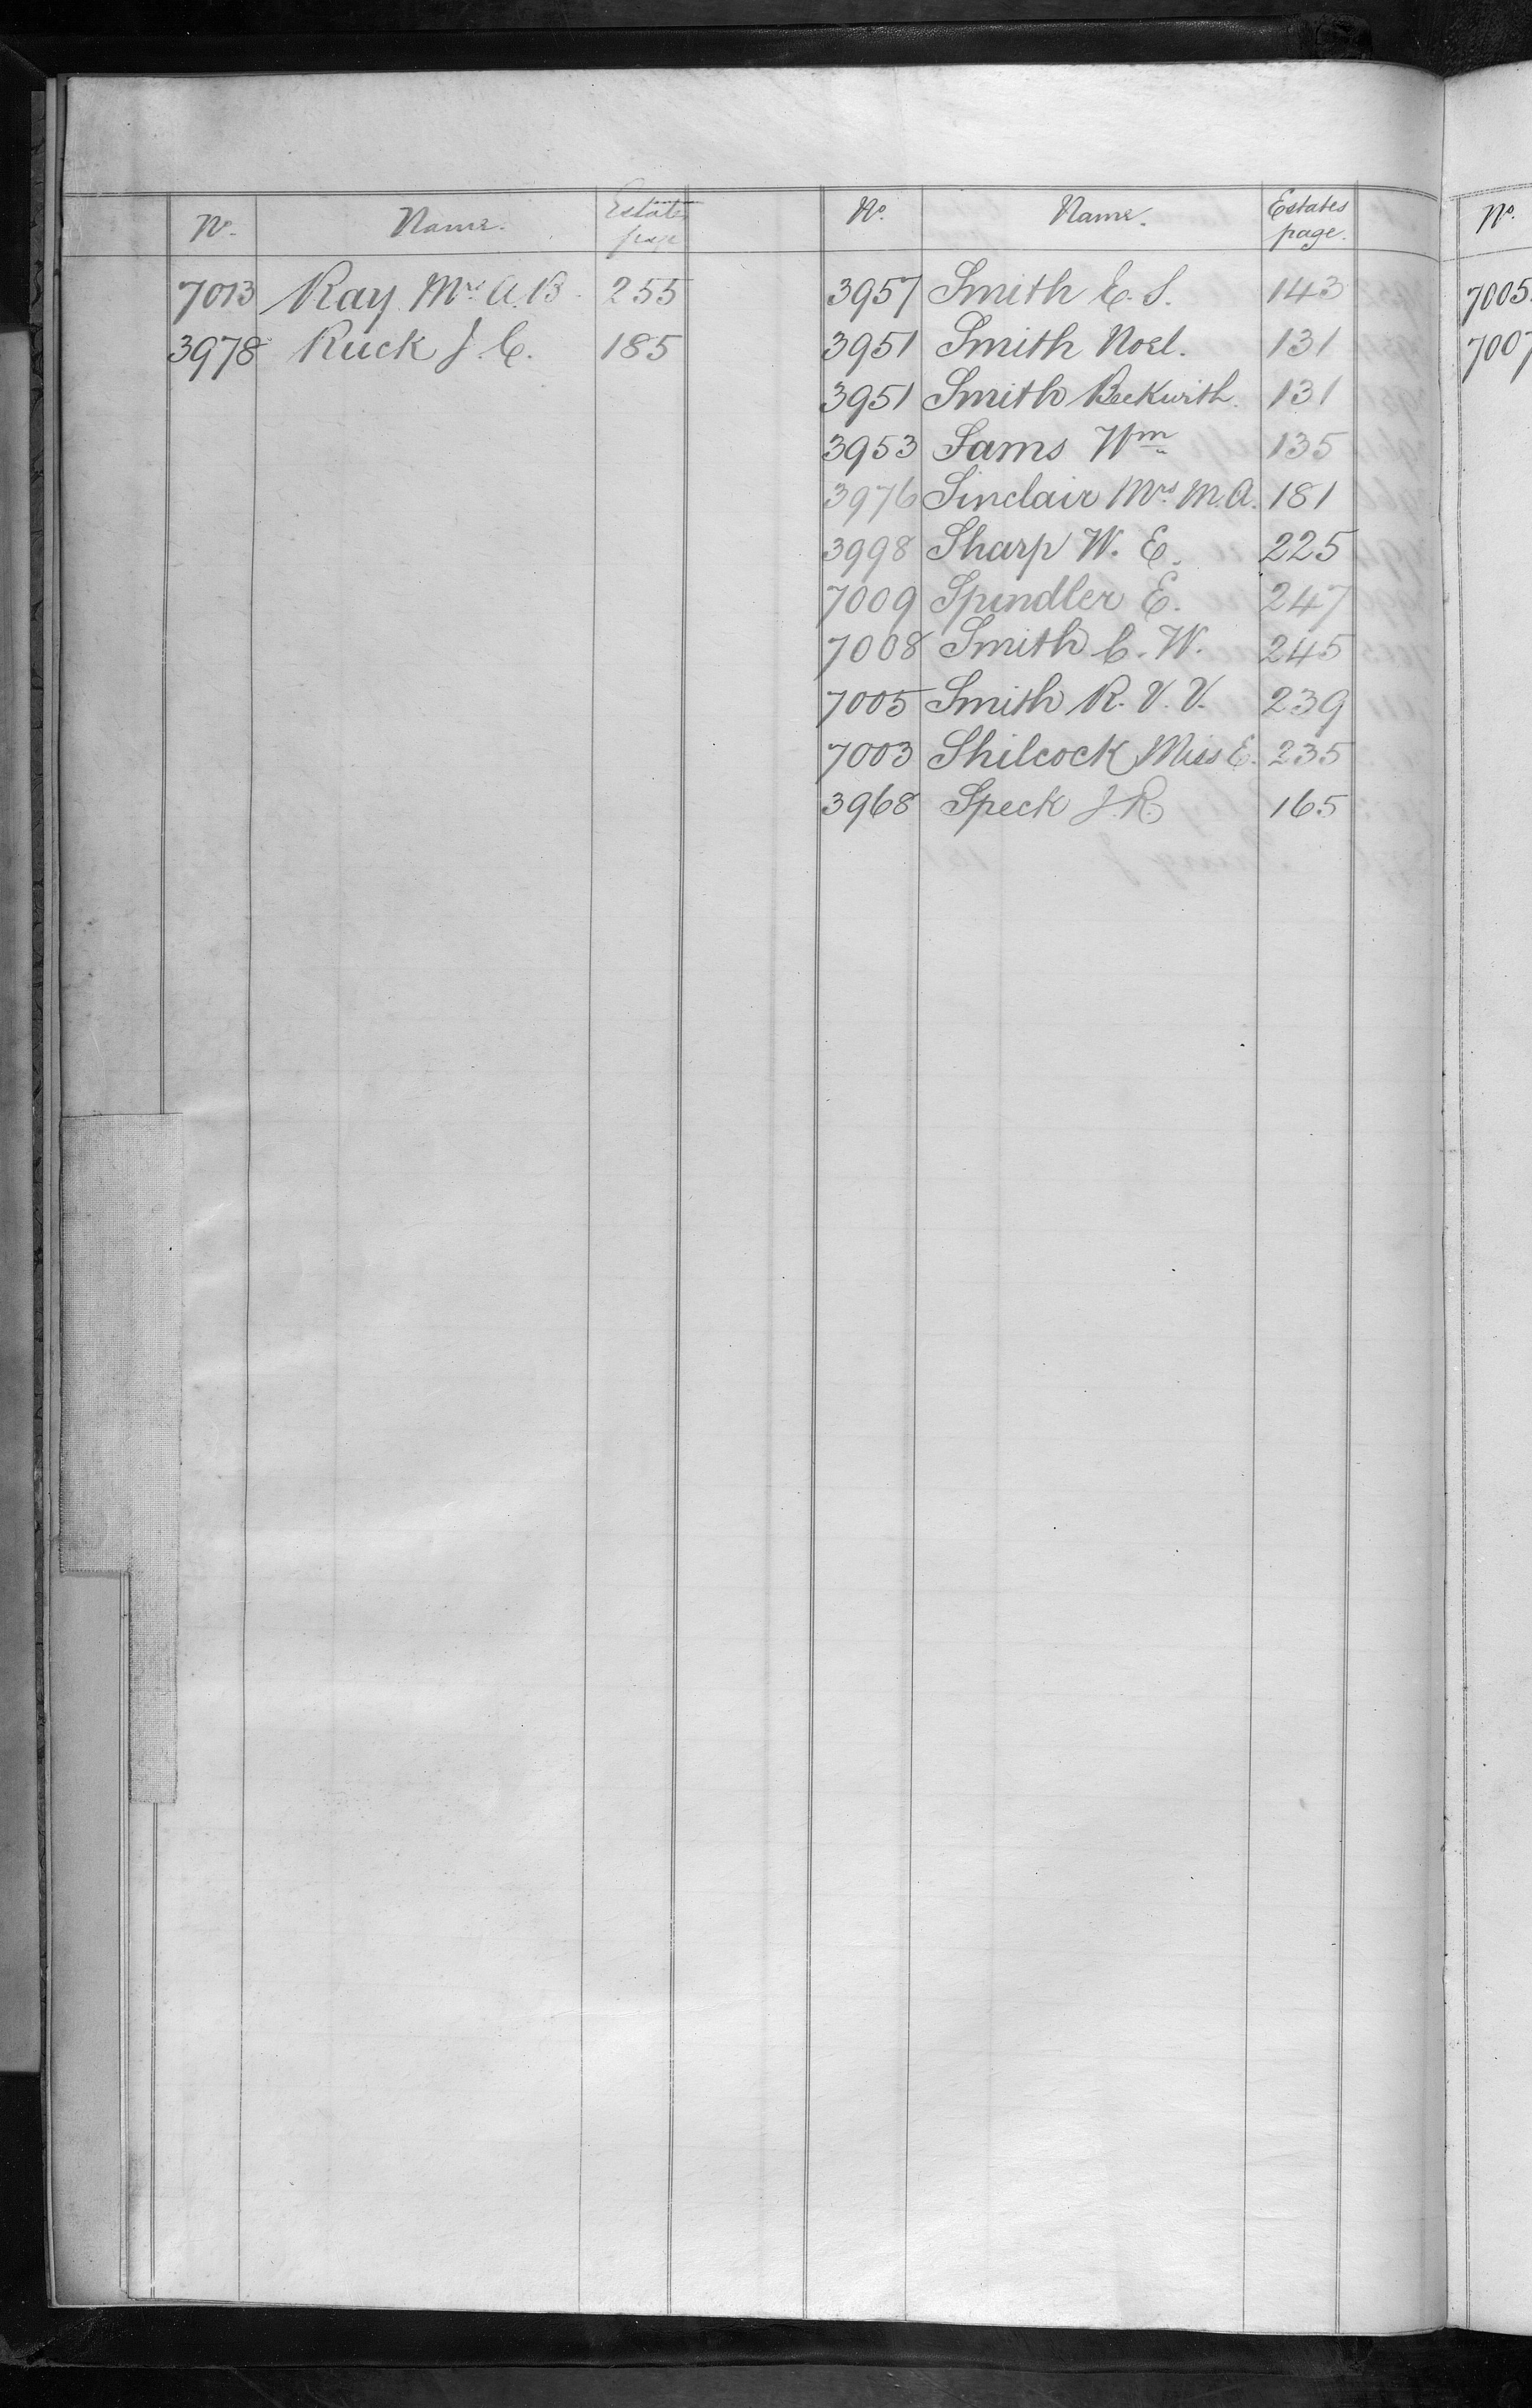 No. Name. Estates page
7013 Ray Mrs A.B. 255
3978 Ruck J. C. 185
No. Name. Estates page.
3957 Smith E. S. 143
3951 Smith Noel. 131
3951 Smith Beckwith. 131
3953 Sams Wm 135
3976 Sinclair Mrs M.A. 181
3998 Sharp W. E. 225
7009 Spindler E. 247
7008 Smith C. W. 245
7005 Smith R. V. V. 239
7003 Shilcock Miss E. 235
3968 Speck J. R. 165
No.
7005
7007